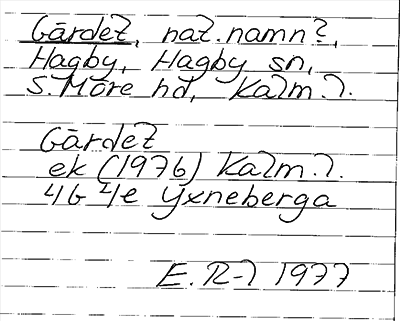 Gärdet, nat.namn?,
Hagby, Hagby sn,
S. Möre hd, Kalm. l.
Gärdet
ek (1976) Kalm. l.
4G 4e Yxneberga
E. R-l 1977